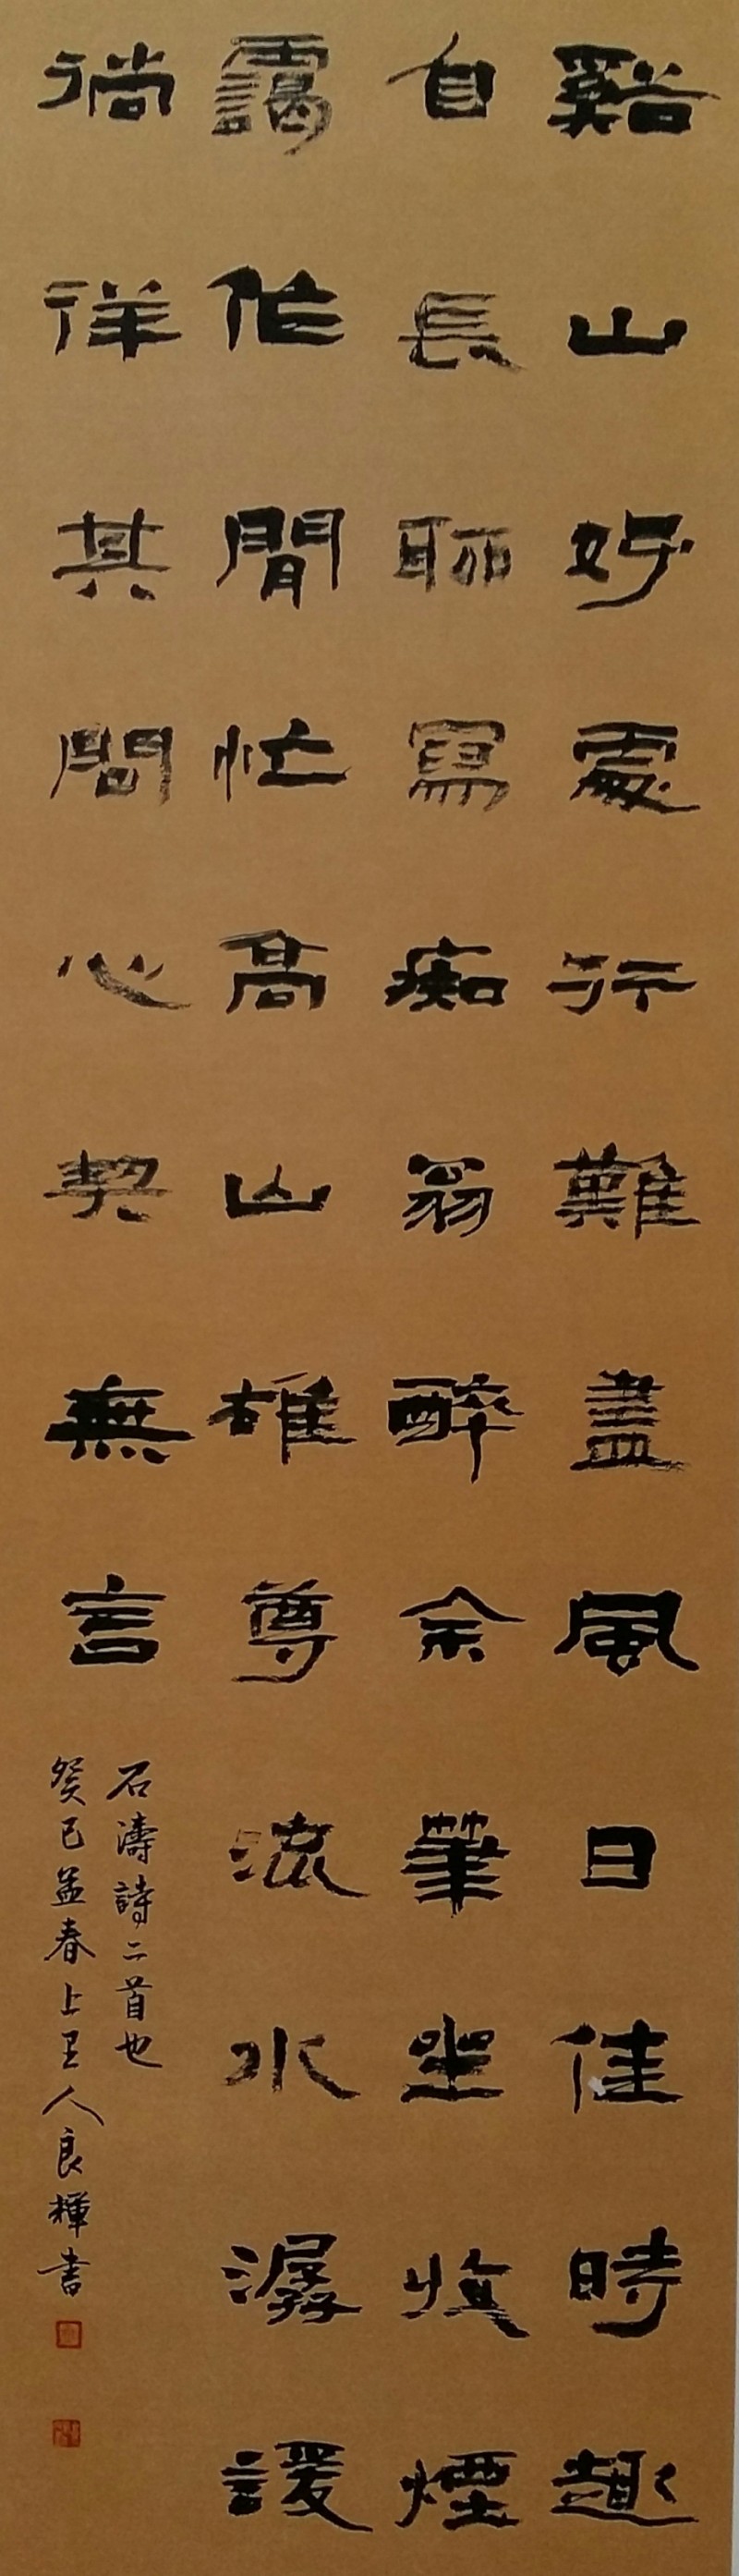 谿山好處行難盡風日佳時趣
自長聊寫痴翁醉余筆坐收煙
靄作閒忙高山雄尊流水潺諼
徜徉其間心契無言
石濤詩二首也
癸巳孟春上王人良樺書